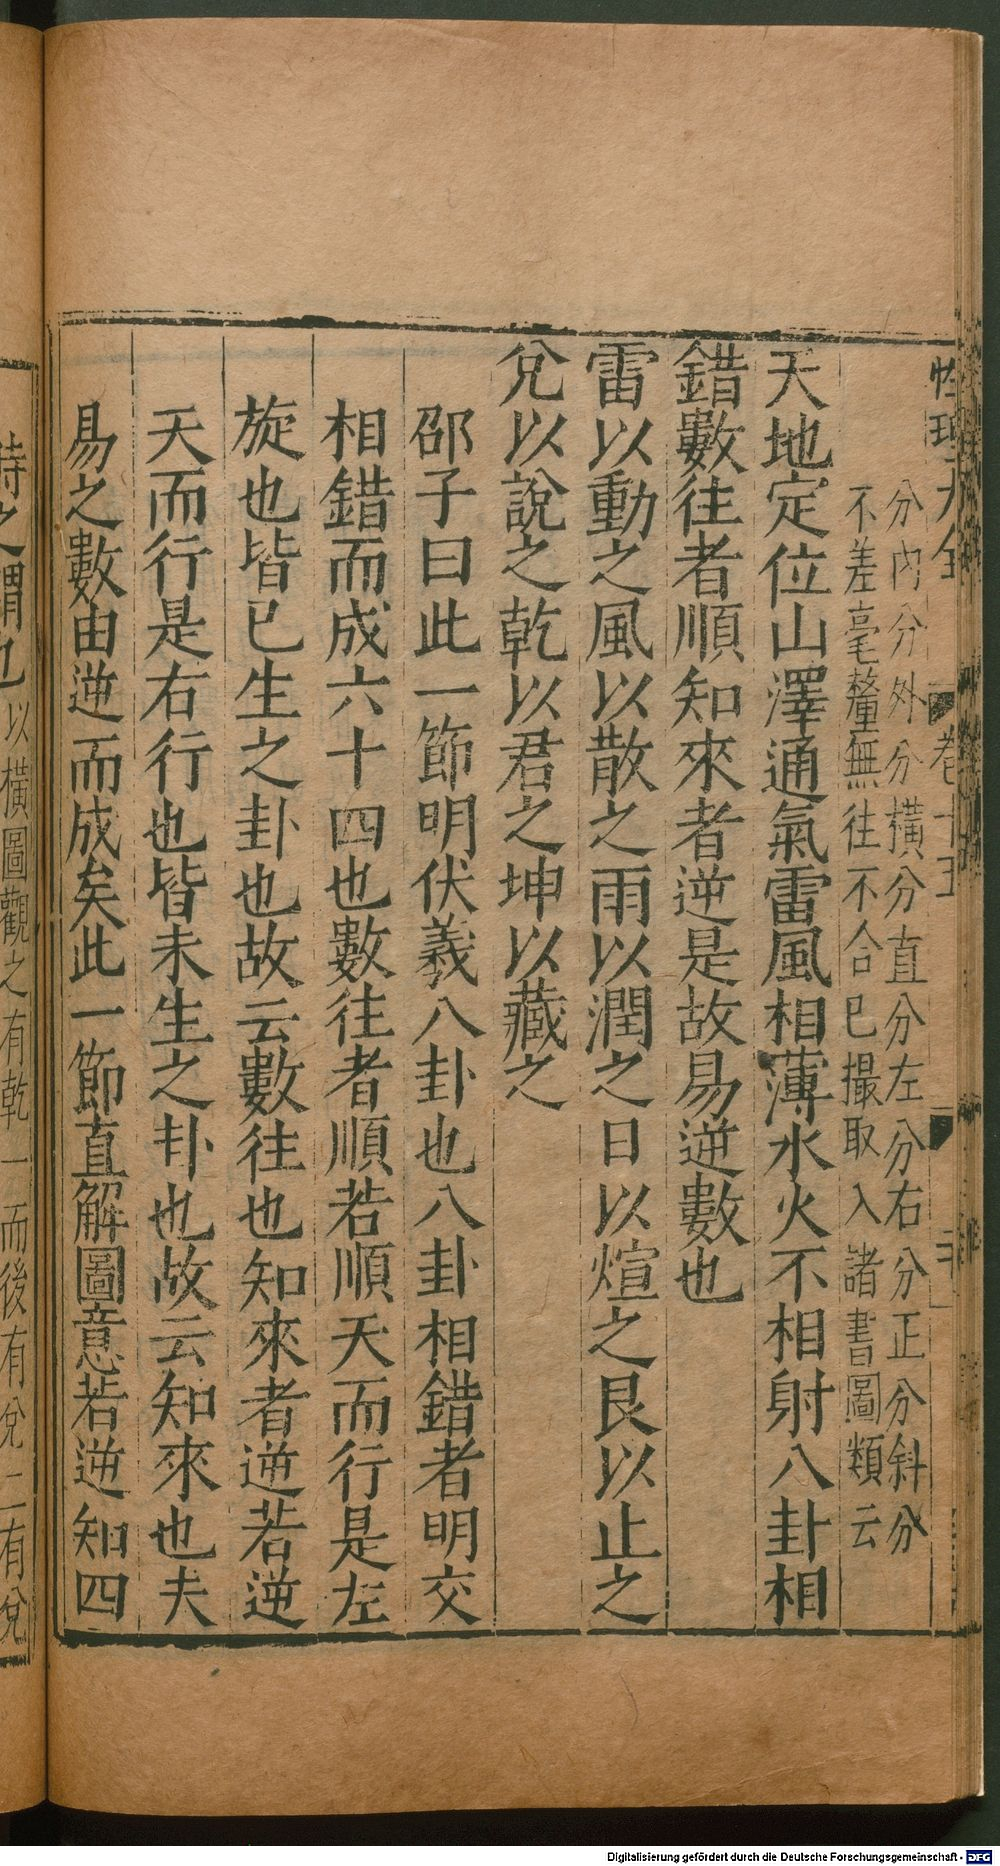 性理大全 卷十五
分內分外分橫分直分左分右分正分斜分
不差毫釐無往不合已撮取入諸書圖類云
天地定位山澤通氣雷風相薄水火不相射八卦相
錯數往者順知來者逆是故易逆數也
雷以動之風以散之雨以潤之日以煊之艮以止之
兌以說之乾以君之坤以藏之
邵子曰此一節明伏羲八卦也八卦相錯者明交
相錯而成六十四也數往者順若順天而行是左
旋也皆已生之卦也故云數往也知來者逆若逆
天而行是右行也皆未生之卦也故云知來也夫
易之數由逆而成矣此一節直解圖意若逆知四
時之謂也以橫圖觀之有乾一而後有兌二有兌
Digitalisierung gefördert durch die Deutsche Forschungsgemeinschaft - DFG